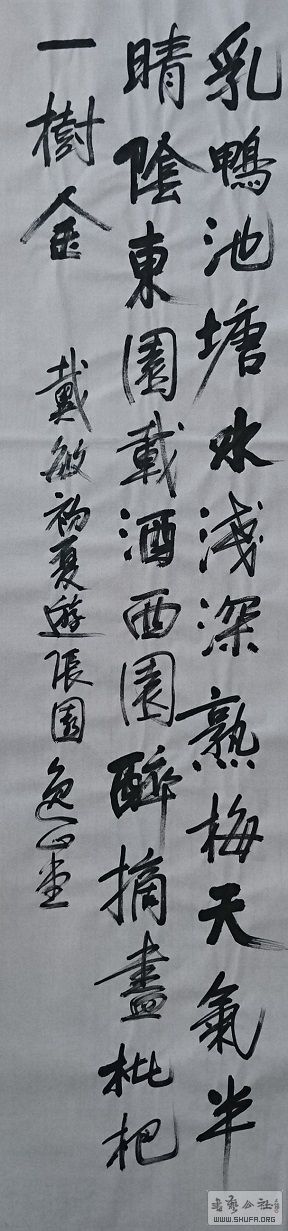 乳鴨池塘水淺深熟梅天氣半
晴陰東園載酒西園醉摘盡枇杷
一樹金
戴敏初夏遊張園逸心堂
书艺公社
WWW.SHUFA.ORG